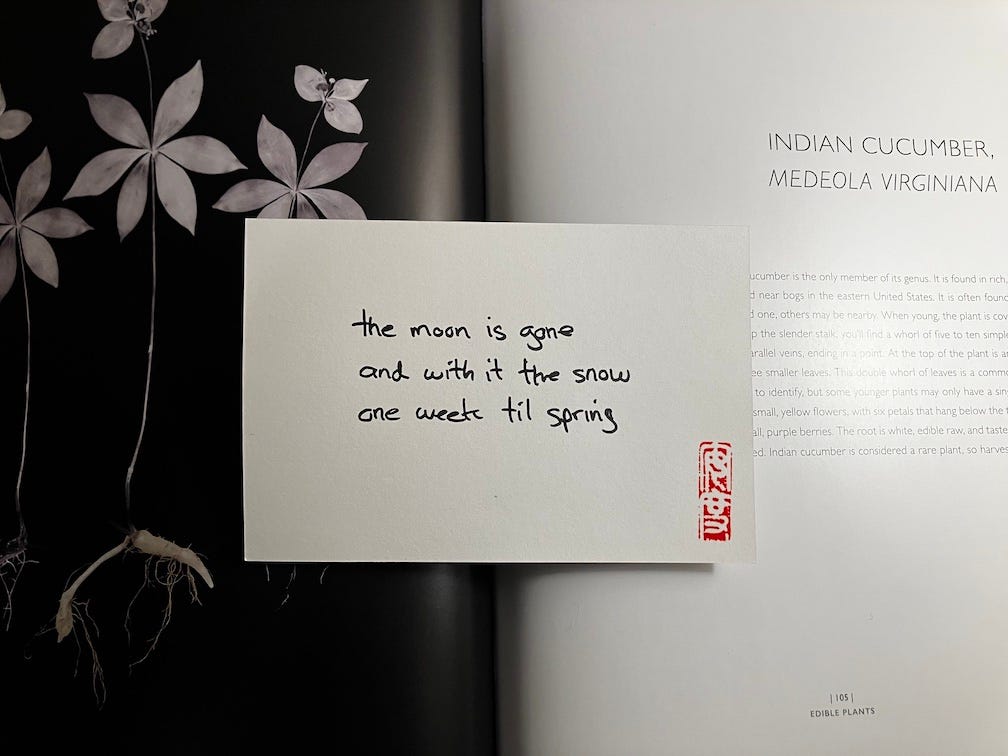 INDIAN CUCUMBER,
MEDEOLA VIRGINIANA
the moon is gone
and with it the snow
one week til spring
ucumber is the only member of its genus. It is found in rich,
d near bogs in the eastern United States. It is often found
d one, others may be nearby. When young, the plant is cov
p the slender stalk, you'll find a whorl of five to ten simple
arallel veins, ending in a point. At the top of the plant is an
ee smaller leaves. This double whorl of leaves is a commo
to identify, but some younger plants may only have a sin
small, yellow flowers, with six petals that hang below the
all, purple berries. The root is white, edible raw, and taste
ed. Indian cucumber is considered a rare plant, so harves
| 105 |
EDIBLE PLANTS